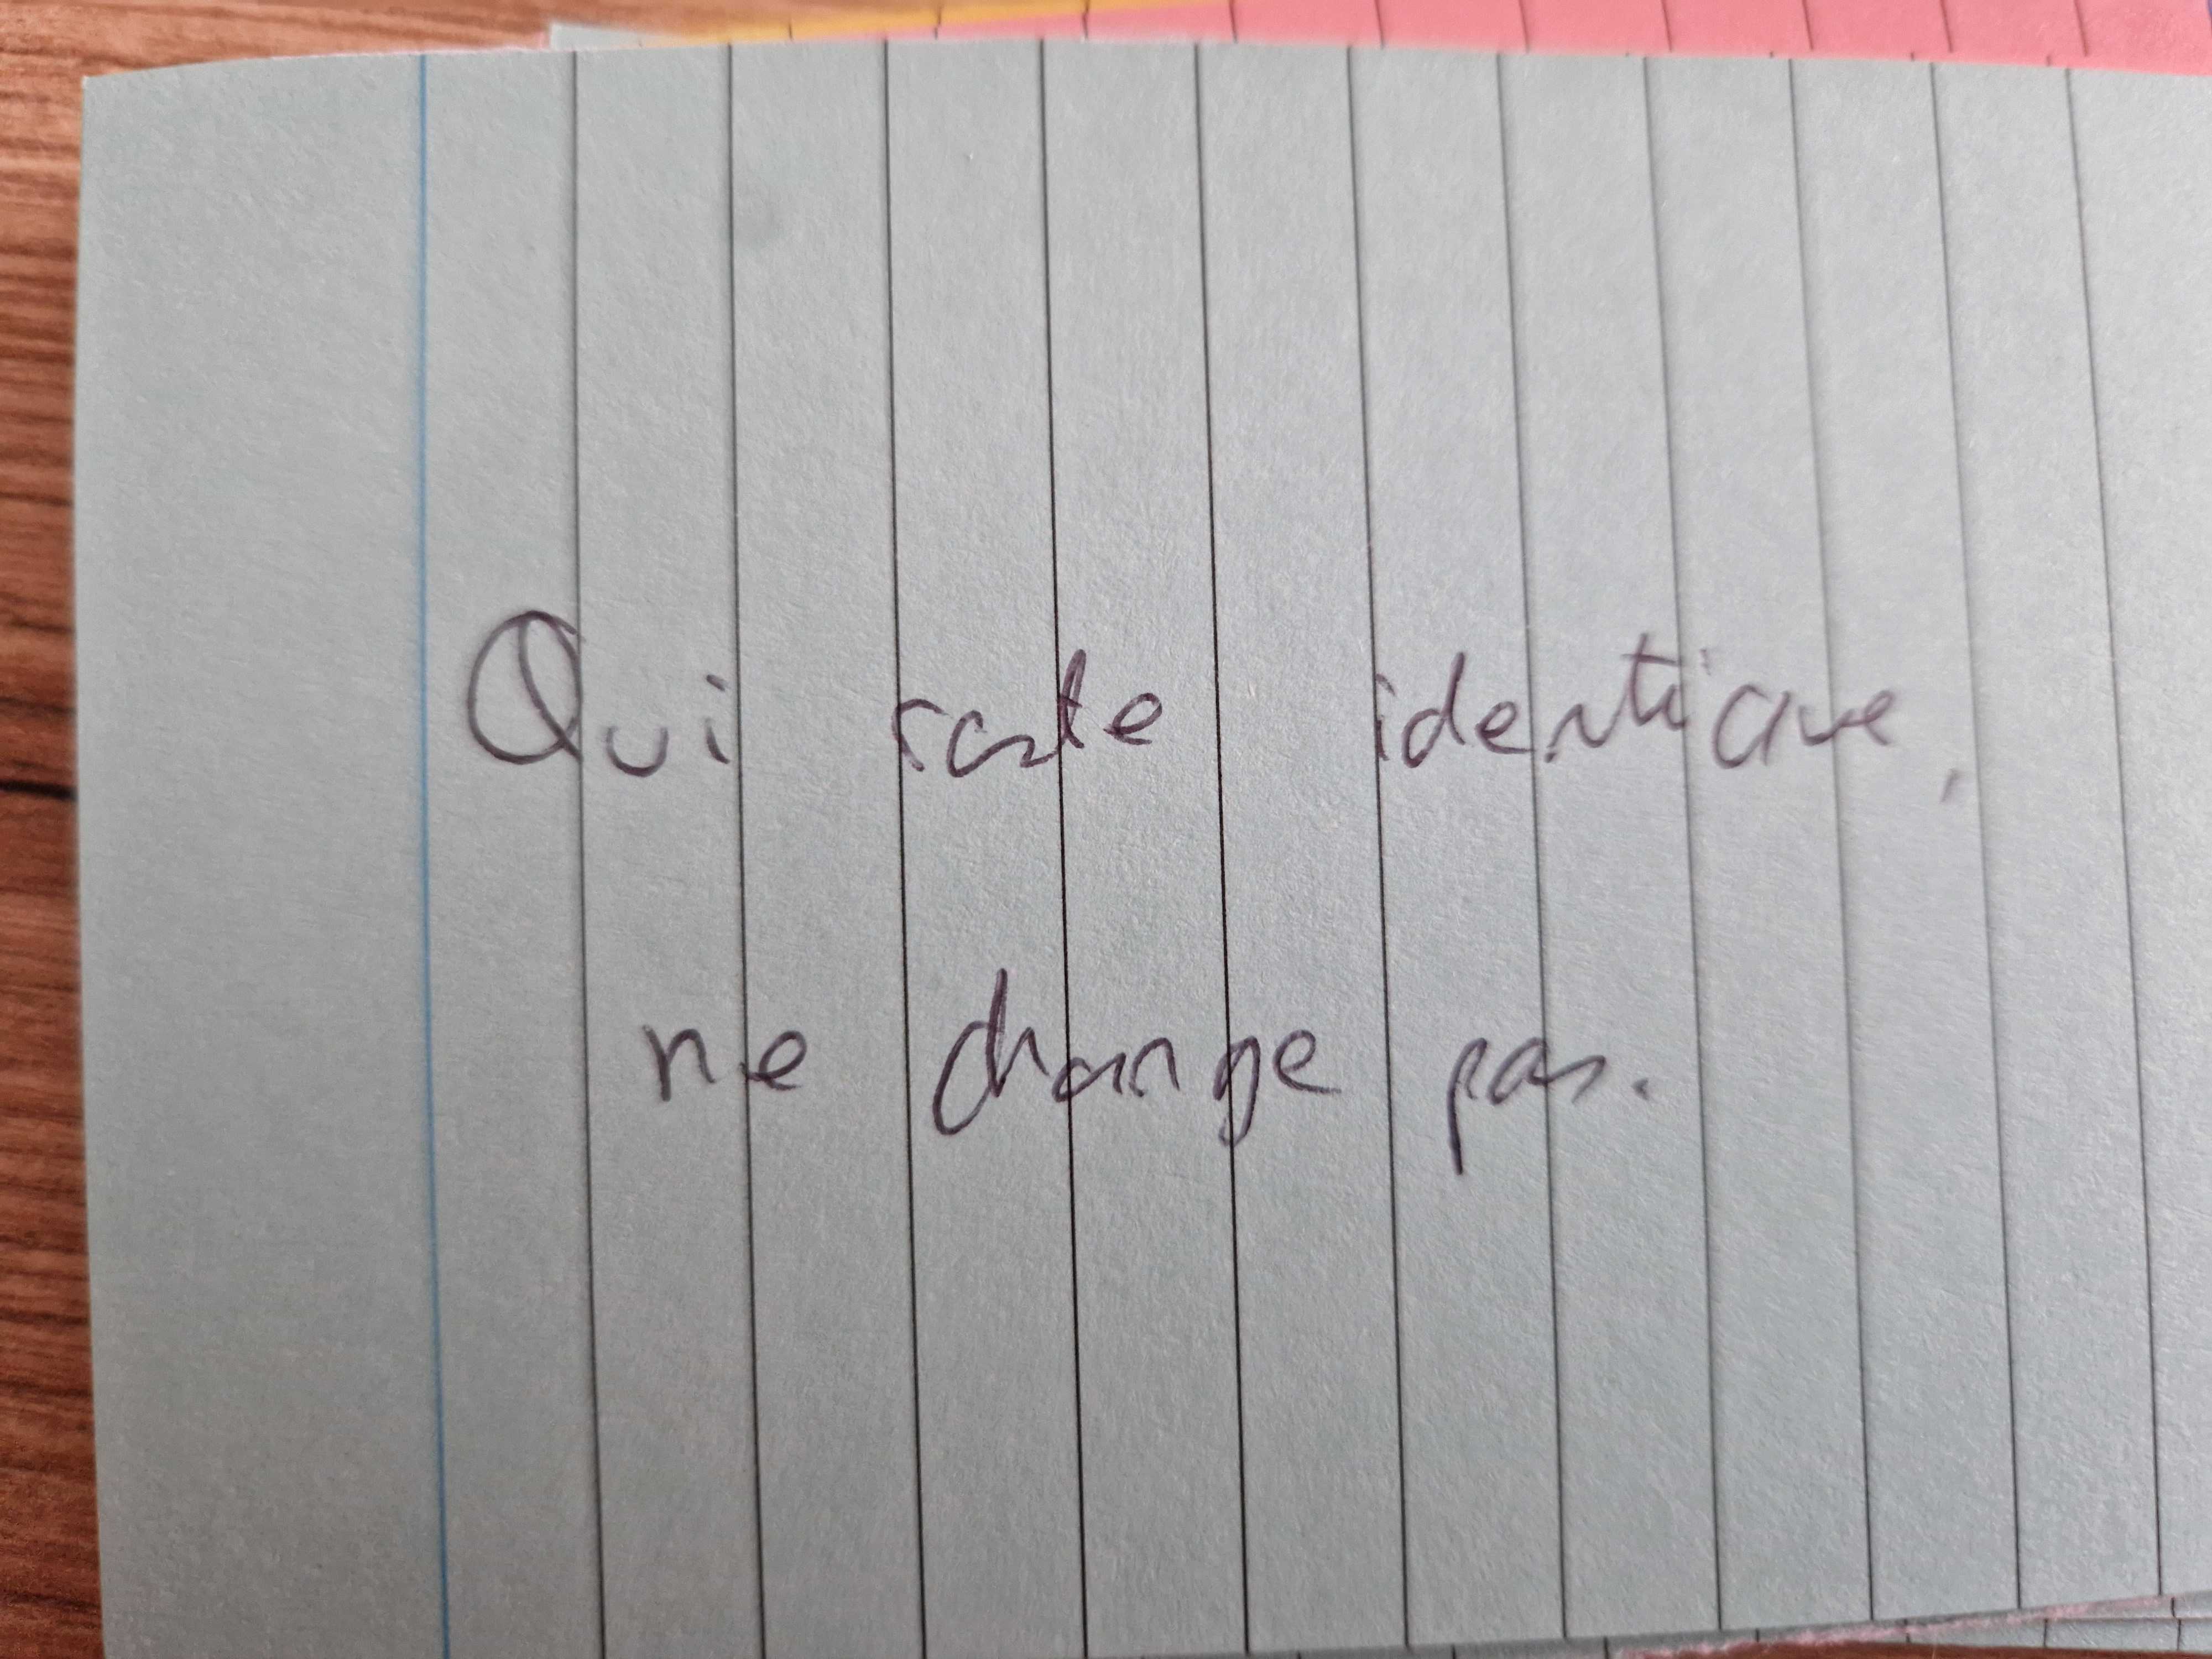 Qui reste identique,
ne change pas.